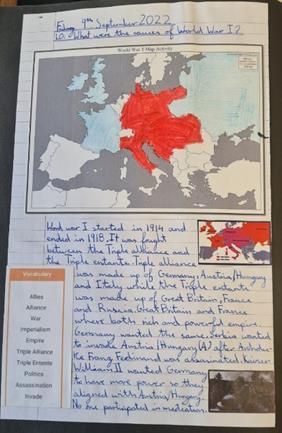 Friday 9th September 2022
L.O. What were the causes of World War I?
World War I Map Activity
World war I started in 1914 and
ended in 1918. It was fought
between the Triple alliance and
the Triple entente. Triple alliance
was made up of Germany, Austria/Hungary
and Italy while the Triple entente
was made up of Great Britain, France
and Russia. Great Britain and France
where both rich and powerful empire.
Germany wanted the same. Serbia wanted
to invade Austria/Hungary (A) after Archdu-
ke Franz Ferdinand was assassinated. Kaiser
William II wanted Germany
to have more power so they
aligned with Austria/Hungary.
No one participated in mediation.
Vocabulary
Allies
Alliance
War
Imperialism
Empire
Triple Alliance
Triple Entente
Politics
Assassination
Invade